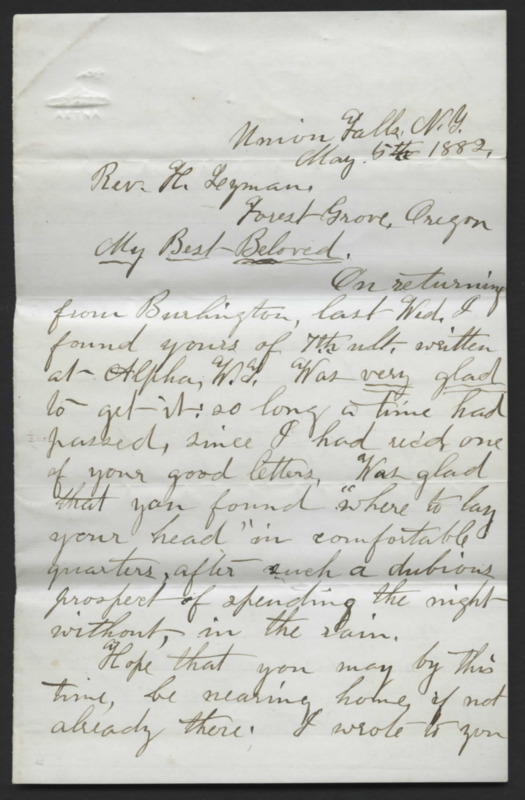 AETNA
Union Falls, N.Y.
May. 5th 1882,
Rev. H. Lyman,
Forest Grove, Oregon
My Best Beloved.
On returning
from Burlington, last Wed. I
found yours of 7th ult. written
at Alpha, W.T. Was very glad
to get it: so long a time had
passed, since I had rec'd one
of your good letters. Was glad
that you found "where to lay
your head" in comfortable
quarters, after such a dubious
prospect of spending the night
without, in the rain.
Hope that you may by this
time, be nearing home, if not
already there. I wrote to you